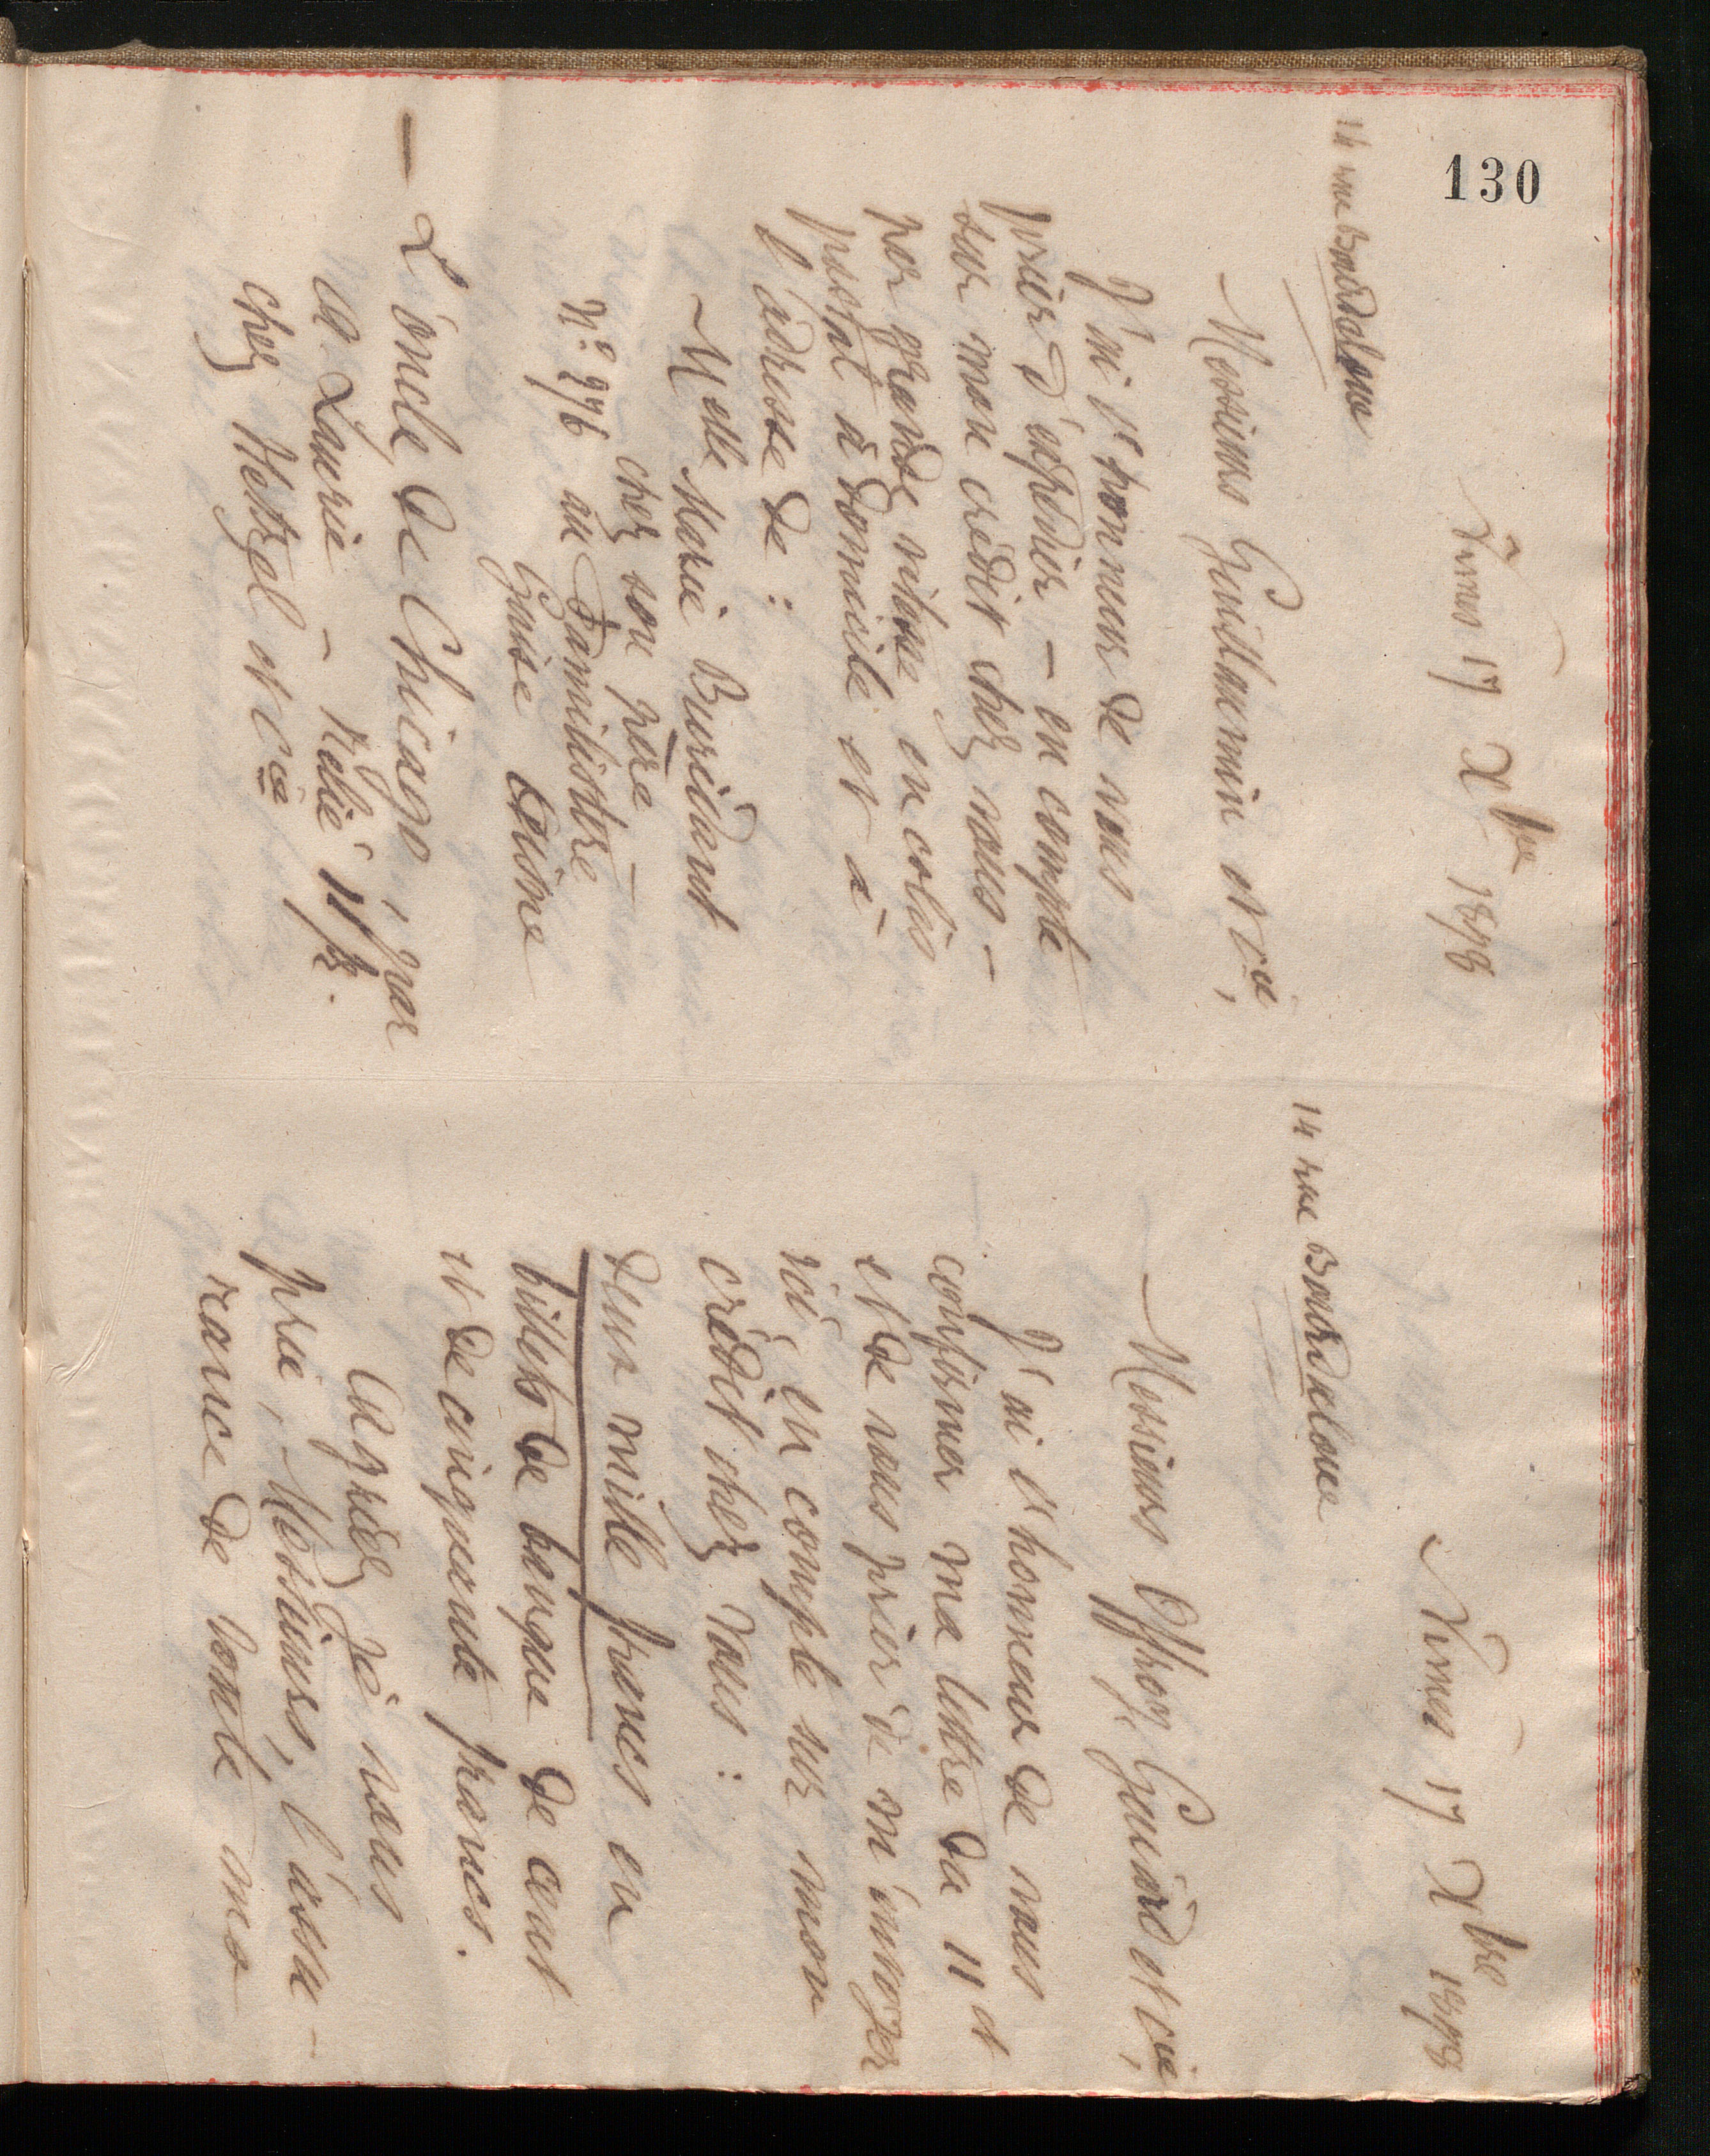 130
Nîmes 17 Xbre 1898
14 rue Bourdaloue
Messieurs Guillaumin et Cie,
J'ai l'honneur de vous
prier d'expédier – en compte
sur mon crédit chez vous –
par grande vitesse en colis
postal à domicile et à
l'adresse de :
Melle Marie Buridant
chez son père –
N° 276 au Familistère
Guise Aisne
– L'oncle de Chicago, par
A Laurie – Relié 11 fr.
chez Hetzel et Cie
Nîmes 17 Xbre 1898
14 rue Bourdaloue
Messieurs Offroy Guiard et Cie,
J'ai l'honneur de vous
confirmer ma lettre du 11 ct
et de vous prier de m'envoyer
ici en compte sur mon
crédit chez vous :
deux mille francs en
billets de banque de cent
et de cinquante francs.
Agréez je vous
prie, Messieurs, l'assu-
rance de toute ma